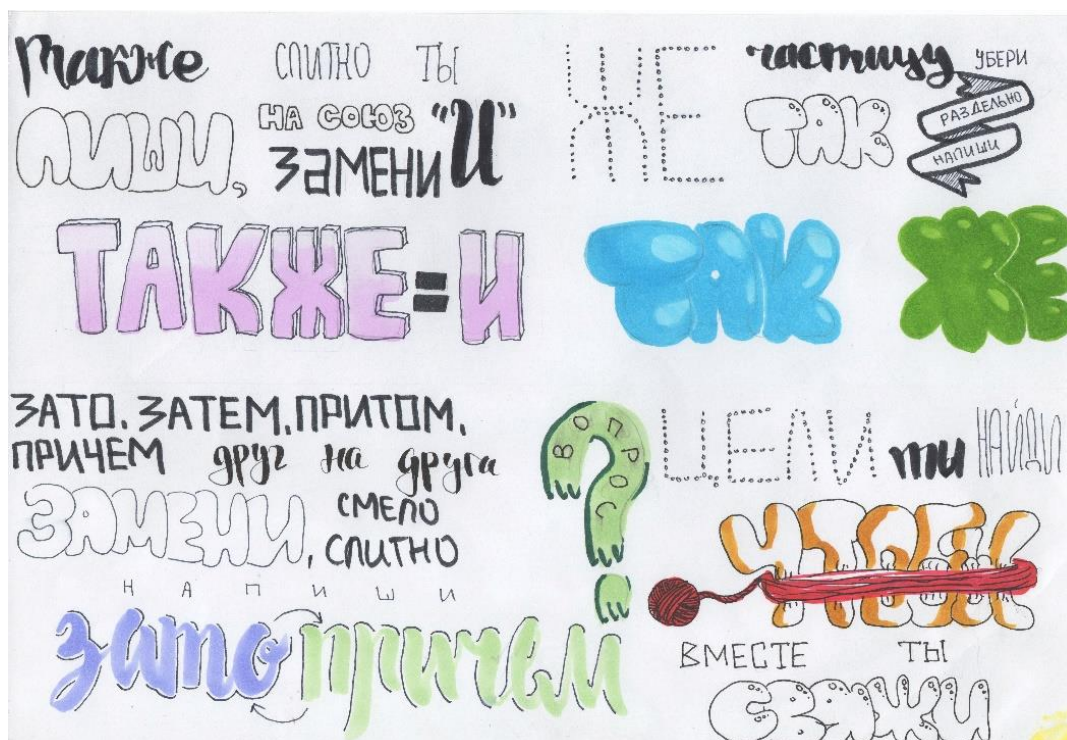 Также СЛИТНО ТЫ
ПИШИ, НА СОЮЗ "И"
ЗАМЕНИ
ТАКЖЕ=И
ЖЕ частицу УБЕРИ
ТАК РАЗДЕЛЬНО
НАПИШИ
ТАК ЖЕ
ЗАТО, ЗАТЕМ, ПРИТОМ,
ПРИЧЕМ друг на друга
ЗАМЕНИ, СМЕЛО
СЛИТНО
НАПИШИ
зато причем
ВОПРОС
ЦЕЛИ ты НАЙДИ
ЧТОБЫ
ВМЕСТЕ ТЫ
СВЯЖИ